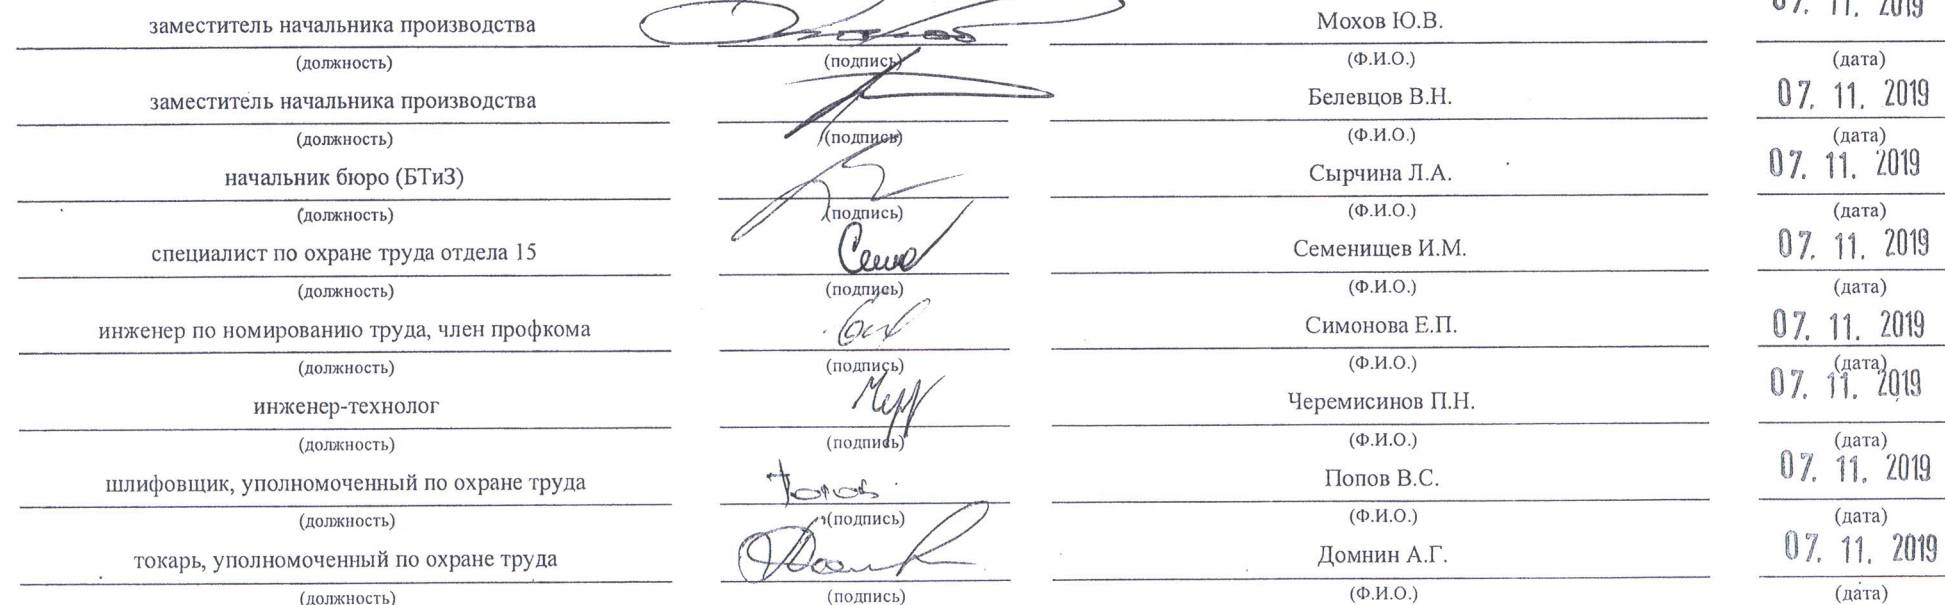 заместитель начальника производства Мохов Ю.В. 07. 11. 2019
(должность) (подпись) (Ф.И.О.) (дата)
заместитель начальника производства Белевцов В.Н. 07. 11. 2019
(должность) (подпись) (Ф.И.О.) (дата)
начальник бюро (БТиЗ) Сырчина Л.А. 07. 11. 2019
(должность) (подпись) (Ф.И.О.) (дата)
специалист по охране труда отдела 15 Семенищев И.М. 07. 11. 2019
(должность) (подпись) (Ф.И.О.) (дата)
инженер по номированию труда, член профкома Симонова Е.П. 07. 11. 2019
(должность) (подпись) (Ф.И.О.) (дата)
инженер-технолог Черемисинов П.Н. 07. 11. 2019
(должность) (подпись) (Ф.И.О.) (дата)
шлифовщик, уполномоченный по охране труда Попов В.С. 07. 11. 2019
(должность) (подпись) (Ф.И.О.) (дата)
токарь, уполномоченный по охране труда Домнин А.Г. 07. 11. 2019
(должность) (подпись) (Ф.И.О.) (дата)